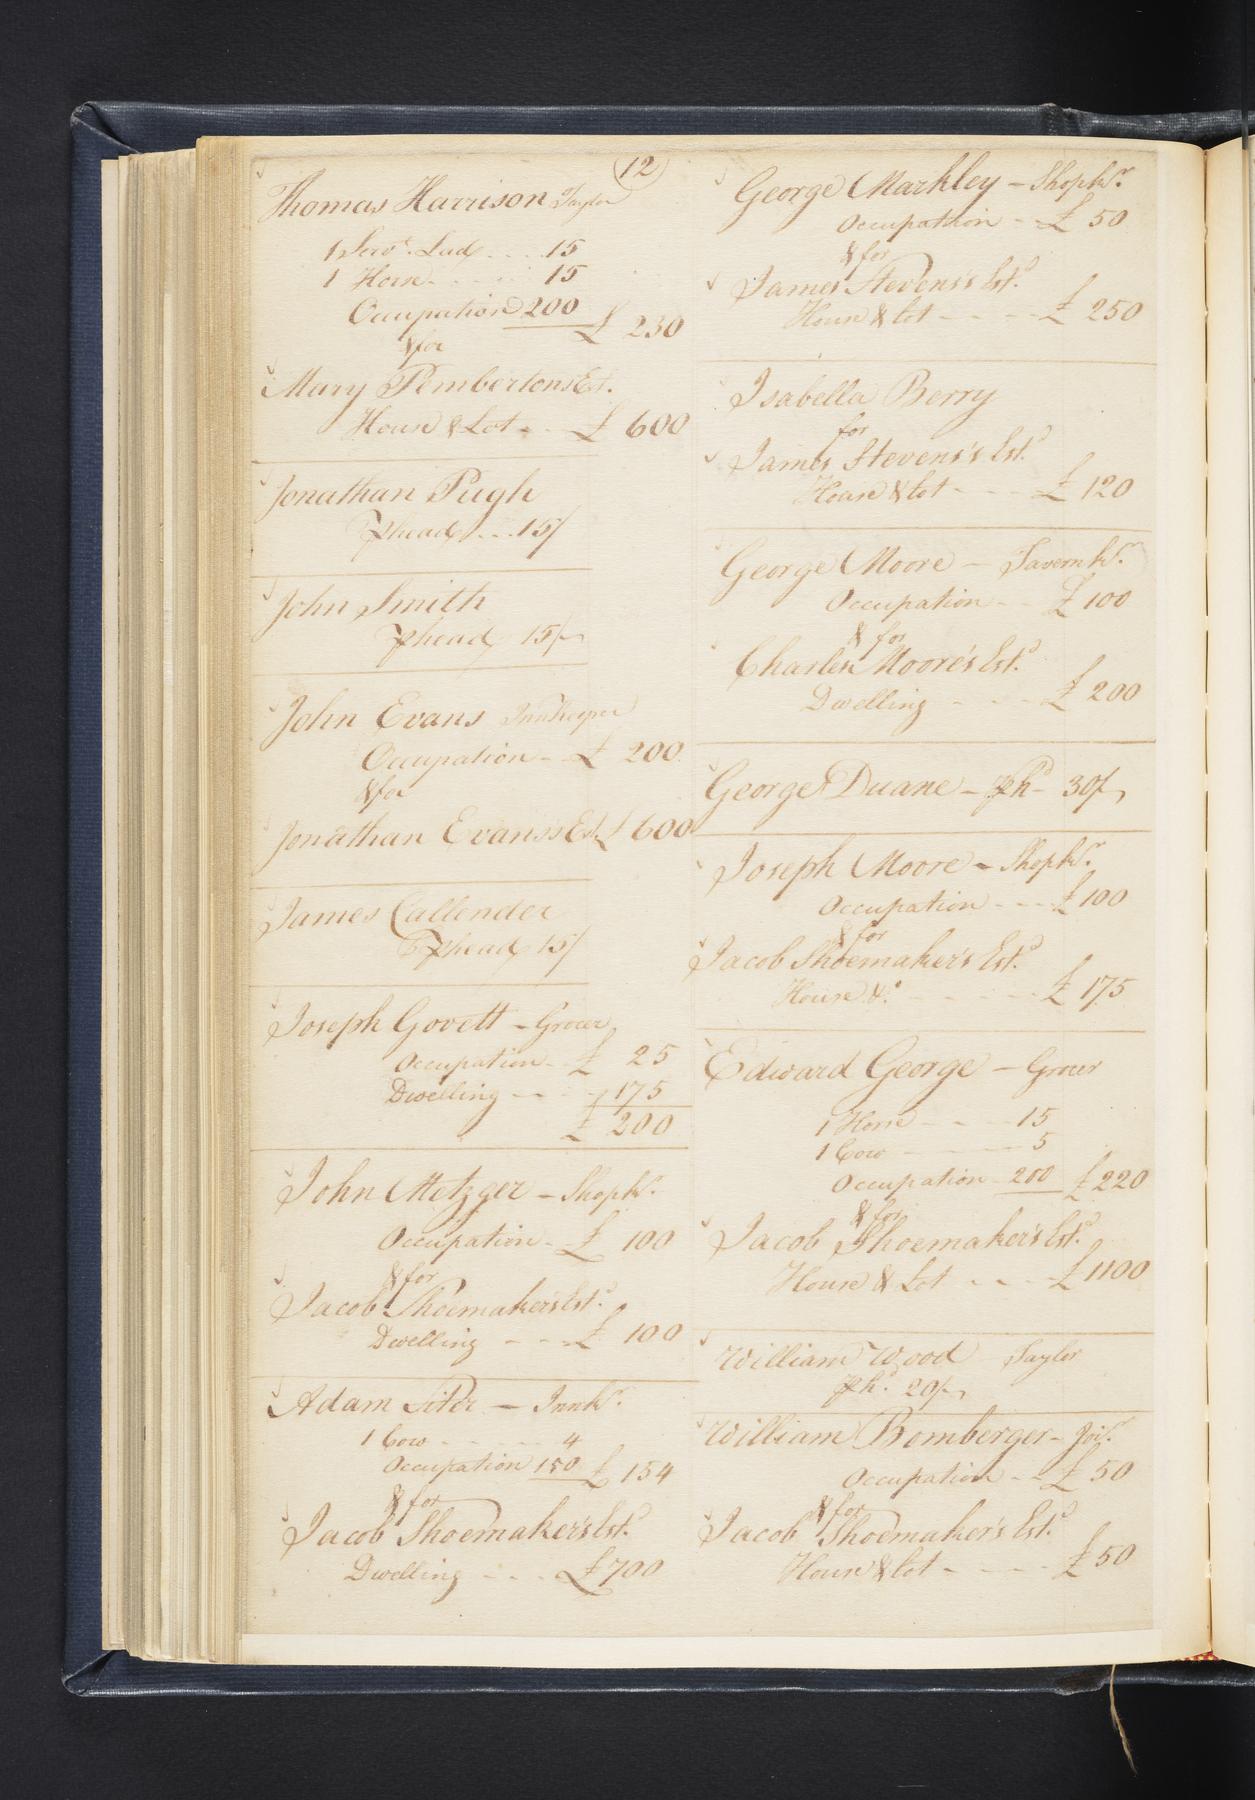 12
Thomas Harrison Taylor
1 Servt. Lad .... 15
1 Horse ..... 15
Occupation 200 £ 230
& for
Mary Pembertons Est.
House & Lot - .. £ 600
Jonathan Pugh
⅌ head ... 15/
John Smith
⅌ head 15/-
John Evans Innkeeper
Occupation - .. £ 200
& for
Jonathan Evans's Est. £ 600
James Callender
⅌ head 15/
Joseph Govett - Grocer
Occupation - £ 25
Dwelling -- .. 175
£ 200
John Metzger - Shopkr.
Occupation - £ 100
& for
Jacob Shoemaker's Estd.
Dwelling - - - £ 100
Adam Siter - Innkr.
1 Cow - - - - 4
Occupation 150 £ 154
& for
Jacob Shoemaker's Estd.
Dwelling - - - £ 700
George Markley - Shopkr.
Occupation - - £ 50
& for
James Stevens's Estd.
House & Lot - - - - £ 250
Isabella Berry
for
James Stevens's Estd.
House & Lot - - - £ 120
George Moore - Tavernkr.
Occupation - - £ 100
& for
Charles Moore's Estd.
Dwelling - - - £ 200
George Duane - ⅌ hd - 30/-
Joseph Moore - Shopkr.
Occupation - - - £ 100
& for
Jacob Shoemaker's Estd.
House &c. - - - - £ 175
Edward George - Grocer
1 Horse - - - 15
1 Cow - - - 5
Occupation - 200 £ 220
& for
Jacob Shoemaker's Estd.
House & Lot - - - £ 1100
William Wood Taylor
⅌ hd. 20/-
William Bomberger - Joir.
Occupation - - £ 50
& for
Jacob Shoemaker's Estd.
House & Lot - - - - £ 50